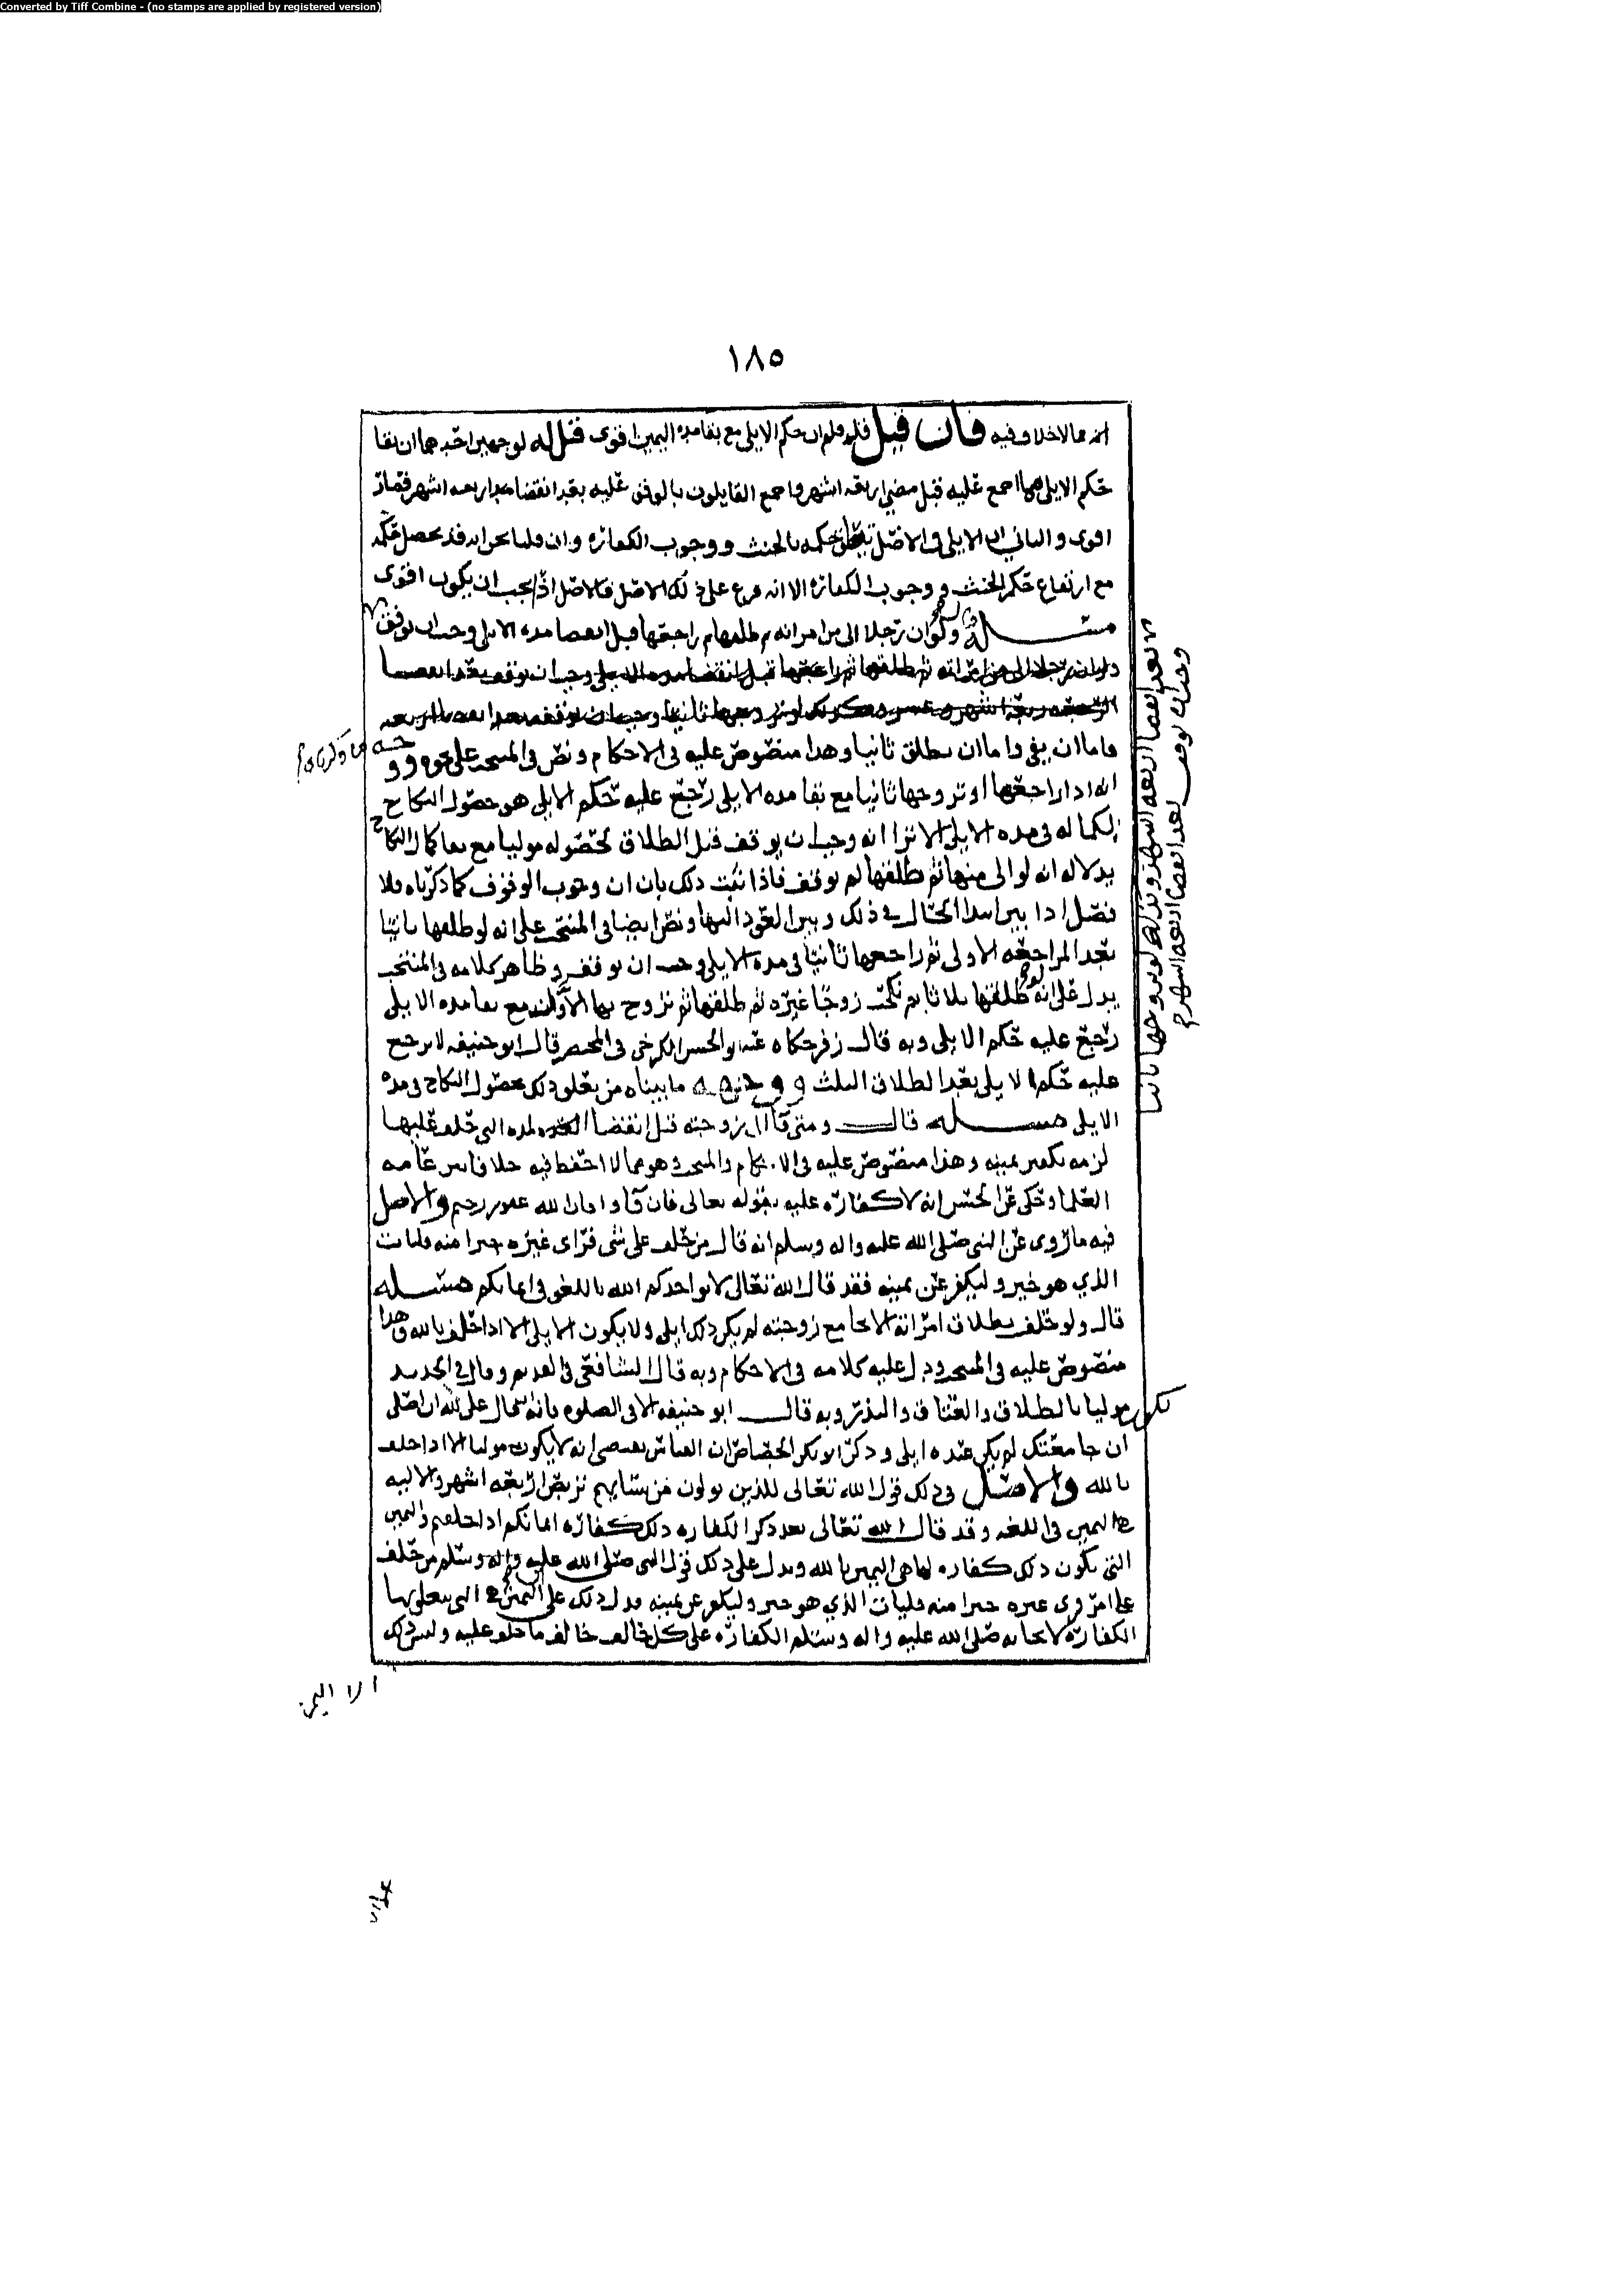 Converted by Tiff Combine - (no stamps are applied by registered version)
١٨٥
انه مما لا خلاف فيه فان قيل فلم قلتم ان حكم الايلي مع بقا مده اليمين اقوى قيل له لوجهين احدهما ان بقا
حكم الايلي مما اجمع عليه قبل مضي اربعه اشهر واجمع القايلون بالوقف عليه بعد انقضا اربعه اشهر فصار
اقوى والثاني ان الايلي في الاصل تعلق حكمه بالحنث ووجوب الكفاره وان قلنا نحن انه قد يحصل حكمه
مع ارتفاع حكم الحنث ووجوب الكفاره الا انه فرع على ذلك الاصل فالاصل اذا يجب ان يكون اقوى
مسئله ولو ان رجلا الى من امراته ثم طلقها ثم راجعها قبل انقضا مده الايلي وجب ان يوقف
ولو ان رجلا الى من امراته ثم طلقها ثم راجعها قبل انقضا مده الايلي وجب ان يوقف بعد انقضا
فاما ان يفي واما ان يطلق ثانيا وهذا منصوص عليه في الاحكام ونص في المنتخب على نحوه ووجهه ما ذكرناه
انه اذا راجعها او تزوجها ثانيا مع بقا مده الايلي رجع عليه حكم الايلي هو حصول النكاح
الكماله في مده الايلي الا ترا انه وجب ان يوقف قبل الطلاق لحصوله موليا مع بقا كمال النكاح
بدلاله انه لو الى منها ثم طلقها لم يوقف فاذا ثبت ذلك بان ان وجوب الوقوف كما ذكرناه فلا
فصل اذا بين ابتدا الحال في ذلك وبين العود اليها ونص ايضا في المنتخب على انه لو طلقها ثانيا
بعد المراجعه الاولى ثم راجعها ثانيا في مده الايلي وجب ان يوقف وظاهر كلامه في المنتخب
يدل على انه لو طلقها ثلاثا ثم نكحت زوجا غيره ثم طلقها ثم تزوج بها الاول مع بقا مده الايلي
رجع عليه حكم الايلي وبه قال زفر حكاه عنه ابو الحسن الكرخي في المختصر قال ابو حنيفه لا يرجع
عليه حكم الايلي بعد الطلاق الثلث ووجهه ما بيناه من تعلق ذلك بحصول النكاح في مده
الايلي مسئله قال ومتى فا الى زوجته قبل انقضا المده التي حلف عليها
لزمه تكفير يمينه وهذا منصوص عليه في الاحكام والمنتخب وهو مما لا احفظ فيه خلافا بين عامه
العلما وحكى عن الحسن انه لا كفاره عليه بقوله تعالى فان فاوا فان الله غفور رحيم والاصل
فيه ما روى عن النبي صلى الله عليه واله وسلم انه قال من حلف على شي فراى غيره خيرا منه فليات
الذي هو خير وليكفر عن يمينه فقد قال الله تعالى لا يواخذكم الله باللغو في ايمانكم مسئله
قال ولو حلف بطلاق امراته الا يجامع زوجته لم يكن ذلك ايلي ولا يكون الايلي الا اذا حلف بالله وهذا
منصوص عليه في المنتخب ودل عليه كلامه في الاحكام وبه قال الشافعي في القديم وقال في الجديد
يكون موليا بالطلاق والعتاق والنذر وبه قال ابو حنيفه الا في الصلوه بانه قال على لله ان اصلي
ان جامعتك لم يكن عنده ايلي وذكر ابو بكر الجصاص ان القياس يقتضي انه لا يكون موليا الا اذا حلف
بالله والاصل في ذلك قول الله تعالى للذين يولون من نسايهم تربص اربعه اشهر والاليه
هي اليمين في اللغه وقد قال الله تعالى بعد ذكر الكفاره ذلك كفاره ايمانكم اذا حلفتم واليمين
التي يكون ذلك كفاره لها هي اليمين بالله ويدل على ذلك قول النبي صلى الله عليه واله وسلم من حلف
على امر فراى غيره خيرا منه فليات الذي هو خير وليكفر عن يمينه فدل ذلك على اليمين التي يتعلق بها
الكفاره لايجابه صلى الله عليه واله وسلم الكفاره على كل حالف خالف ما حلف عليه وليس ذلك
الا اليمين
بعد انقضا اربعه اشهر وكذلك لو تزوجها ثانيا
وجب ان يوقف بعد انقضا اربعه اشهر